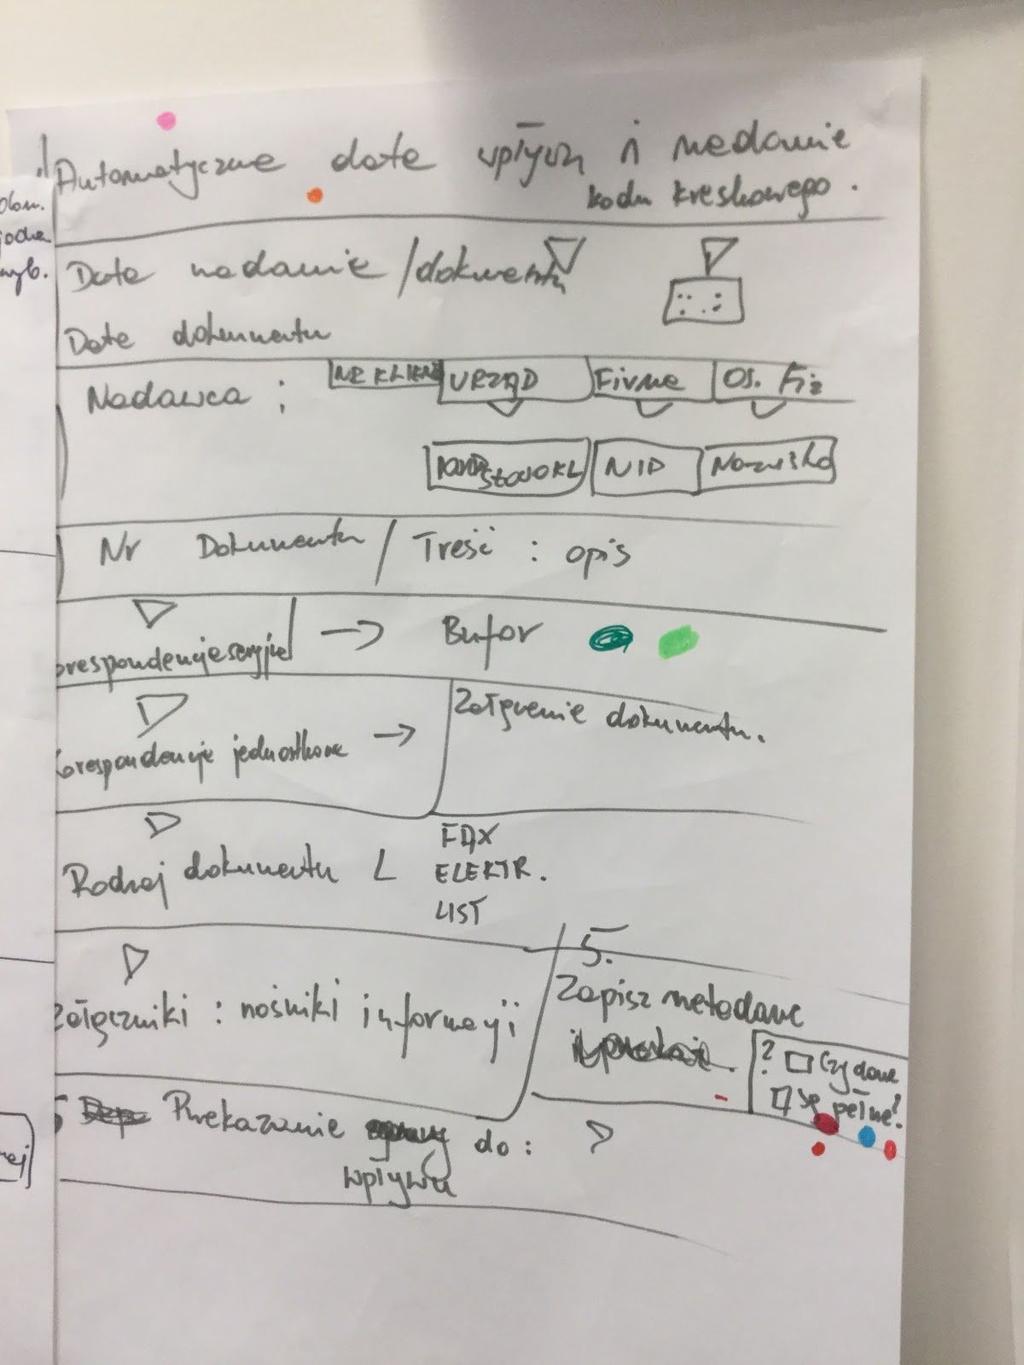 Automatyczne data wpływu i nadanie
kodu kreskowego.
Data nadanie/dokumentu
Data dokumentu
Nadawca :
URZĄD
Firma
Os. Fiz
NIP
Nazwisko
Nr Dokumentu / Treść : opis
orespondencje seryjne → Bufor
orespondencje jednostkowe →
Załączenie dokumentu.
Rodzaj dokumentu
FAX
ELEKTR.
LIST
załączniki : nośniki informacji
5.
Zapisz metadane
? Czy dane
są pełne?
5 Przekazanie do :
wpływu